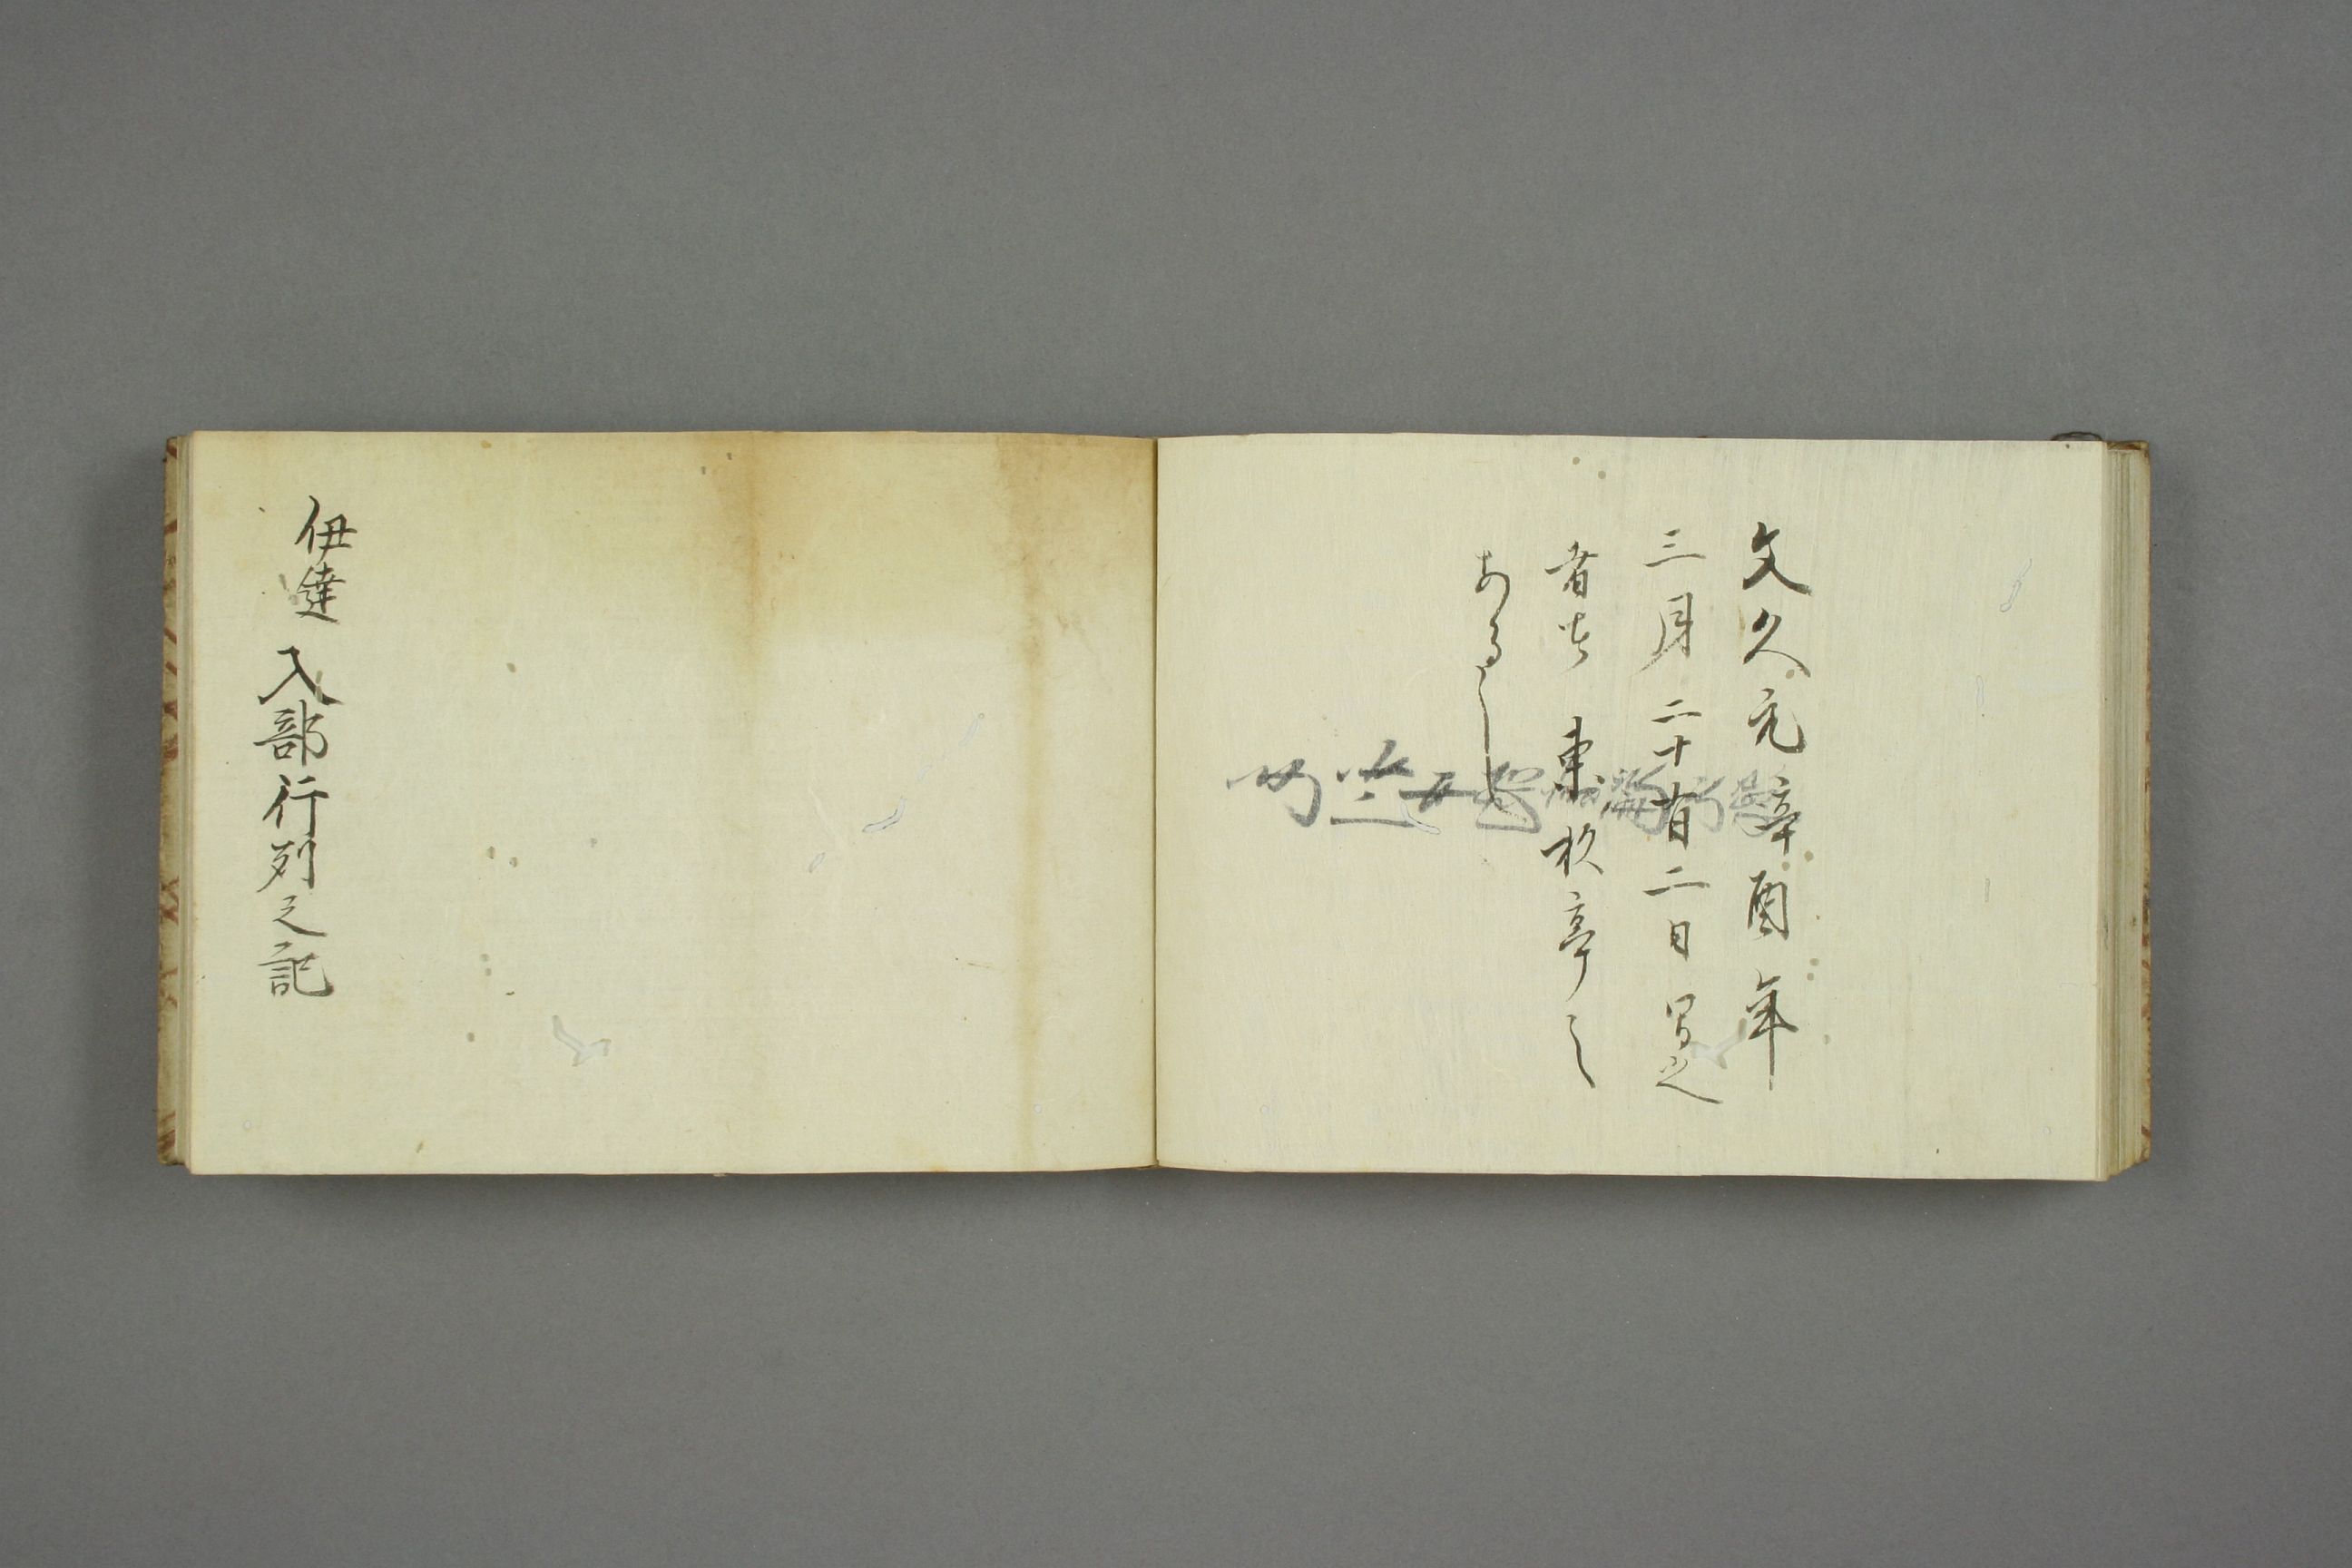 文久元辛酉年
三月二十有二日写之
者也 東秋亭之
あるし
伊達入部行列之記